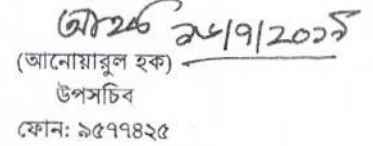 ২৮/৭/২০১৯
(আনোয়ারুল হক)
উপসচিব
ফোন: ৯৫৭৭৪২৫